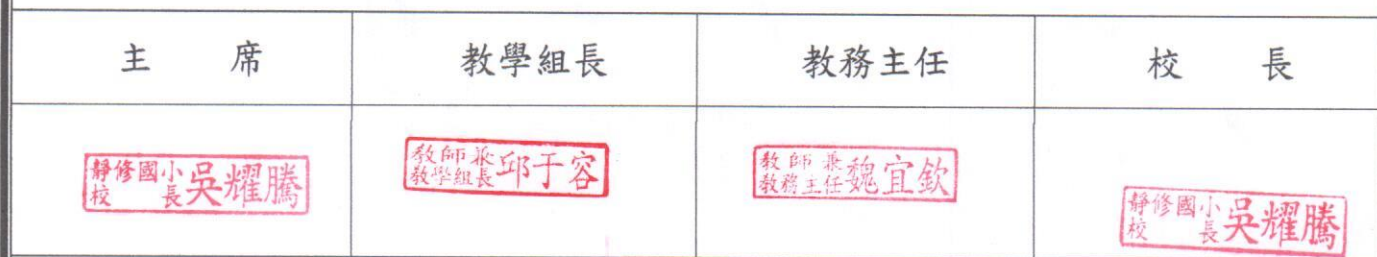 主 席 教學組長 教務主任 校 長
靜修國小校長吳耀騰 教師兼教學組長邱于容 教師兼教務主任魏宜欽 靜修國小校長吳耀騰